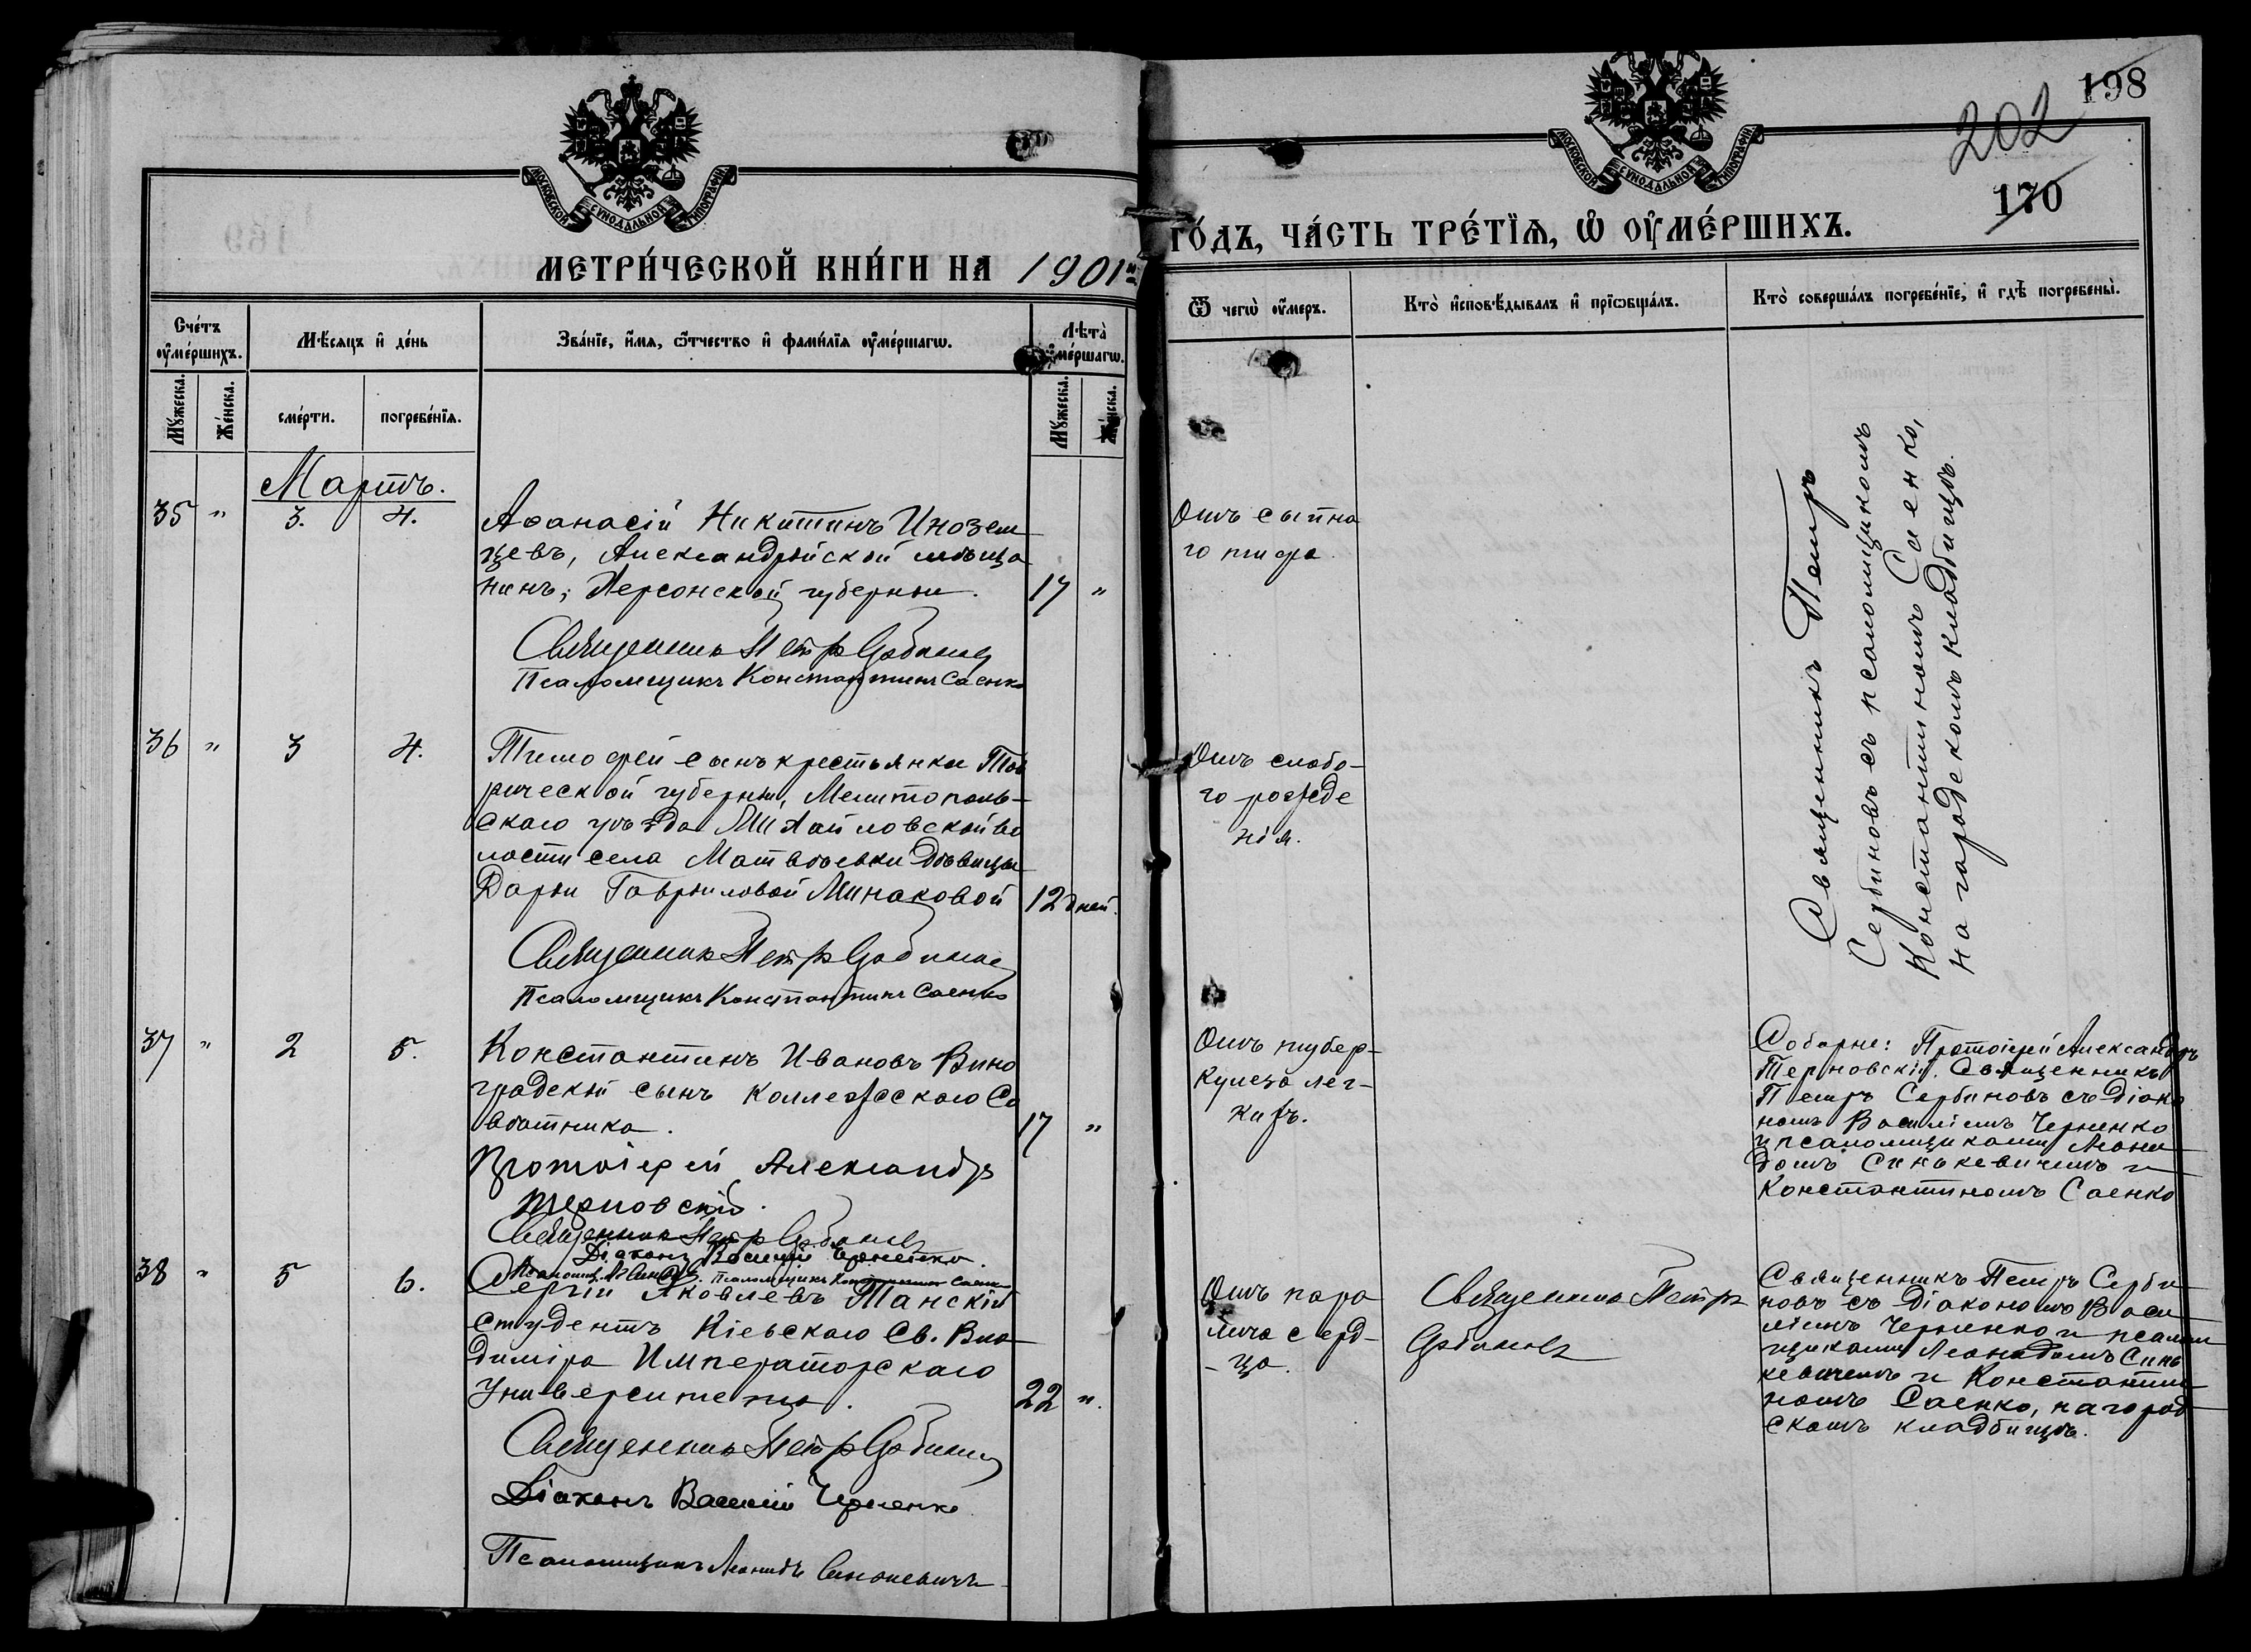 198
202
170
МОСКОВСКОЙ СѴНОДАЛЬНОЙ ТИПОГРАФІИ
МОСКОВСКОЙ СѴНОДАЛЬНОЙ ТИПОГРАФІИ
МЕТРИ́ЧЕСКОЙ КНИ́ГИ НА 1901й
ГО́ДЪ, ЧА́СТЬ ТРЕ́ТЇѦ, Ѡ ОУ҆МЕ́РШИХЪ.
Сче́тъ оу҆ме́ршихъ.
Мѣ́сяцъ и҆ де́нь
Зва́нїе, и҆́мя, ѻ҆́тчество и҆ фами́лїя оу҆ме́ршагѡ.
Лѣта̀ оу҆ме́ршагѡ.
Ѿ чегѡ̀ оу҆́меръ.
Кто̀ и҆сповѣ́дывалъ и҆ прїѡбща́лъ.
Кто̀ соверша́лъ погребе́нїе, и҆ гдѣ̀ погребены̀.
Мꙋ́жеска.
Же́нска.
сме́рти.
погребе́нїя.
Мꙋ́жеска.
Же́нска.
Мартъ.
35 " 3. 4.
Аѳанасій Никитинъ Инозем
цевъ, Александрійской мѣща
нинъ, Херсонской губерніи. 17 "
Священникъ Петръ Сербиновъ
Псаломщикъ Константинъ Саенко
Отъ сыпна
го тифа
Священникъ Петръ
Сербиновъ съ псаломщикомъ
Константиномъ Саенко,
на городскомъ кладбищѣ.
36 " 3 4.
Тимофей сынъ крестьянки Тав
рической губерніи, Мелитополь-
скаго уѣзда Михайловской во
лости села Матвѣевки дѣвицы
Дарьи Гавриловой Минаковой 12 дней.
Священникъ Петръ Сербиновъ
Псаломщикъ Константинъ Саенко
Отъ слабо-
го рожде
нія.
37 " 2 5.
Константинъ Ивановъ Вино
градскій сынъ Коллежскаго Со
вѣтника. 17 "
Протоіерей Александръ
Терновскій.
Священникъ Петръ Сербиновъ
Діаконъ Василій Черненко.
Псаломщикъ Константинъ Саенко
Отъ тубер-
кулеза лег-
кихъ.
Соборне: Протоіерей Александръ
Терновскій. Священникъ
Петръ Сербиновъ съ діако
номъ Василіемъ Черненко
и псаломщиками Леони
домъ Синькевичемъ и
Константиномъ Саенко
38 " 5 6.
Сергій Яковлевъ Танскій
студентъ Кіевскаго Св. Вла-
диміра Императорскаго
Университета. 22 ".
Священникъ Петръ Сербиновъ
Діаконъ Василій Черненко
Псаломщикъ Леонидъ Синькевичъ
Отъ пара
лича серд-
-ца.
Священникъ Петръ
Сербиновъ
Священникъ Петръ Серби
новъ съ діакономъ Васи
ліемъ Черненко и псалом
щиками Леонидомъ Синь
кевичемъ и Константи
номъ Саенко, на город-
скомъ кладбищѣ.